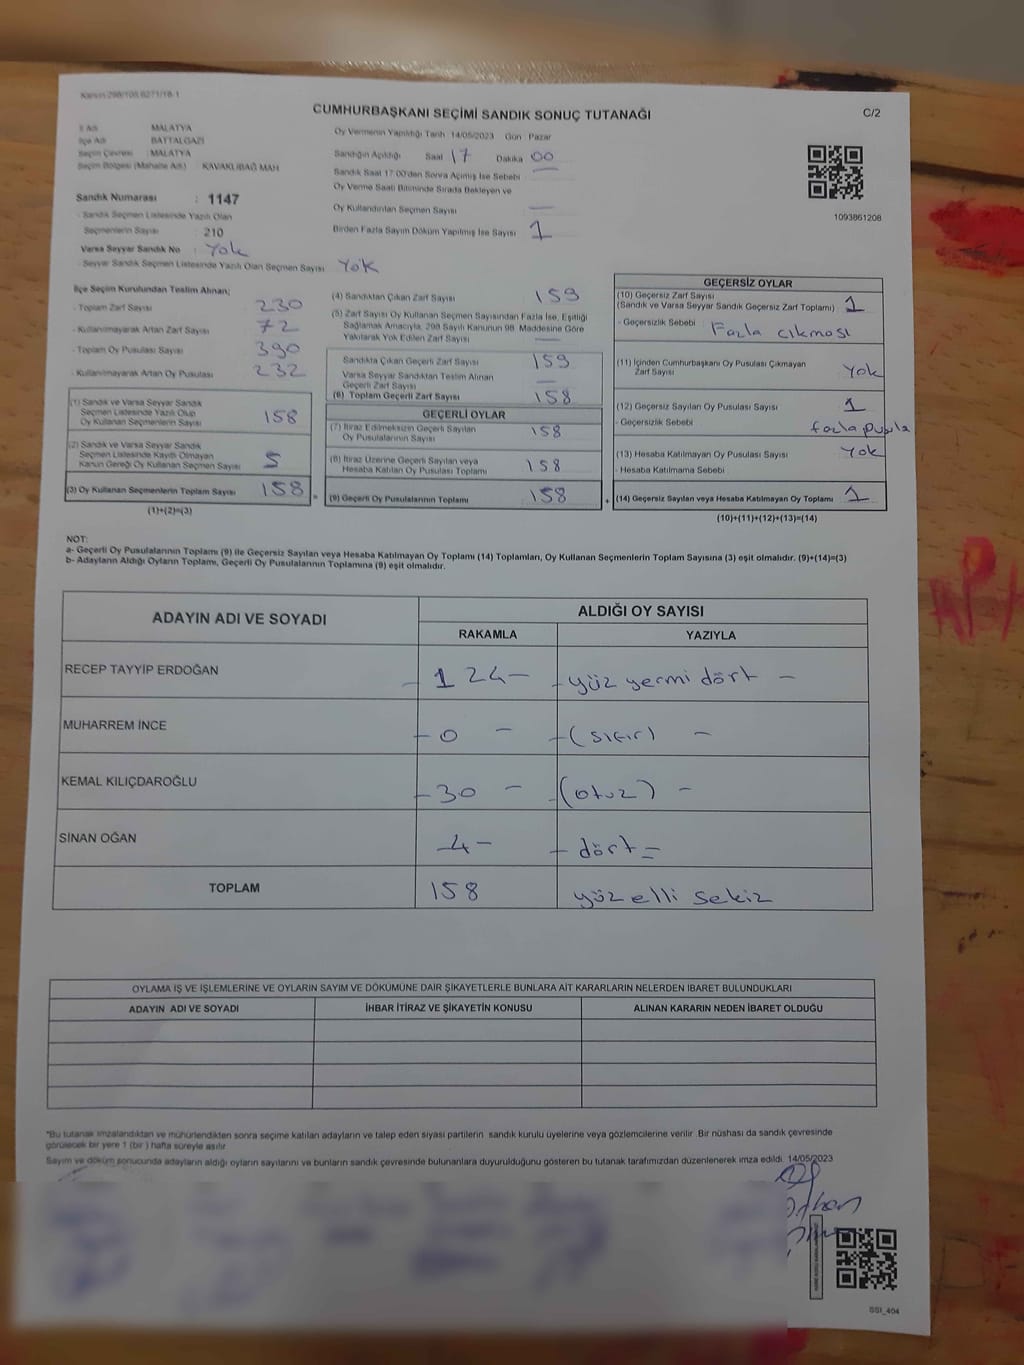 Kanun:298/105,6271/18-1
CUMHURBAŞKANI SEÇİMİ SANDIK SONUÇ TUTANAĞI
C/2
İl Adı : MALATYA
İlçe Adı : BATTALGAZİ
Seçim Çevresi : MALATYA
Seçim Bölgesi (Mahalle Adı) : KAVAKLIBAĞ MAH.
Sandık Numarası : 1147
- Sandık Seçmen Listesinde Yazılı Olan
Seçmenlerin Sayısı : 210
Varsa Seyyar Sandık No : Yok
- Seyyar Sandık Seçmen Listesinde Yazılı Olan Seçmen Sayısı : Yok
Oy Vermenin Yapıldığı Tarih: 14/05/2023 Gün: Pazar
Sandığın Açıldığı Saat 17 Dakika 00
Sandık Saat 17:00'den Sonra Açılmış İse Sebebi —
Oy Verme Saati Bitiminde Sırada Bekleyen ve
Oy Kullandırılan Seçmen Sayısı —
Birden Fazla Sayım Döküm Yapılmış İse Sayısı 1
1093861208
İlçe Seçim Kurulundan Teslim Alınan;
- Toplam Zarf Sayısı : 230
- Kullanılmayarak Artan Zarf Sayısı : 72
- Toplam Oy Pusulası Sayısı : 390
- Kullanılmayarak Artan Oy Pusulası : 232
(1) Sandık ve Varsa Seyyar Sandık
Seçmen Listesinde Yazılı Olup
Oy Kullanan Seçmenlerin Sayısı 158
(2) Sandık ve Varsa Seyyar Sandık
Seçmen Listesinde Kayıtlı Olmayan
Kanun Gereği Oy Kullanan Seçmen Sayısı 5
(3) Oy Kullanan Seçmenlerin Toplam Sayısı 158
(1)+(2)=(3)
=
(4) Sandıktan Çıkan Zarf Sayısı 159
(5) Zarf Sayısı Oy Kullanan Seçmen Sayısından Fazla İse, Eşitliği
Sağlamak Amacıyla, 298 Sayılı Kanunun 98. Maddesine Göre
Yakılarak Yok Edilen Zarf Sayısı —
Sandıkta Çıkan Geçerli Zarf Sayısı 159
Varsa Seyyar Sandıktan Teslim Alınan
Geçerli Zarf Sayısı —
(6) Toplam Geçerli Zarf Sayısı 158
GEÇERLİ OYLAR
(7) İtiraz Edilmeksizin Geçerli Sayılan
Oy Pusulalarının Sayısı 158
(8) İtiraz Üzerine Geçerli Sayılan veya
Hesaba Katılan Oy Pusulası Toplamı 158
(9) Geçerli Oy Pusulalarının Toplamı 158
+
GEÇERSİZ OYLAR
(10) Geçersiz Zarf Sayısı
(Sandık ve Varsa Seyyar Sandık Geçersiz Zarf Toplamı) 1
- Geçersizlik Sebebi : Fazla çıkması
(11) İçinden Cumhurbaşkanı Oy Pusulası Çıkmayan
Zarf Sayısı Yok
(12) Geçersiz Sayılan Oy Pusulası Sayısı 1
- Geçersizlik Sebebi : fazla pusula
(13) Hesaba Katılmayan Oy Pusulası Sayısı Yok
- Hesaba Katılmama Sebebi
(14) Geçersiz Sayılan veya Hesaba Katılmayan Oy Toplamı 1
(10)+(11)+(12)+(13)=(14)
NOT:
a- Geçerli Oy Pusulalarının Toplamı (9) ile Geçersiz Sayılan veya Hesaba Katılmayan Oy Toplamı (14) Toplamları, Oy Kullanan Seçmenlerin Toplam Sayısına (3) eşit olmalıdır. (9)+(14)=(3)
b- Adayların Aldığı Oyların Toplamı, Geçerli Oy Pusulalarının Toplamına (9) eşit olmalıdır.
ADAYIN ADI VE SOYADI
ALDIĞI OY SAYISI
RAKAMLA YAZIYLA
RECEP TAYYİP ERDOĞAN - 124 - - yüz yermi dört -
MUHARREM İNCE - 0 - - (sıfır) -
KEMAL KILIÇDAROĞLU - 30 - - (otuz) -
SİNAN OĞAN - 4 - - dört =
TOPLAM 158 yüz elli sekiz
OYLAMA İŞ VE İŞLEMLERİNE VE OYLARIN SAYIM VE DÖKÜMÜNE DAİR ŞİKAYETLERLE BUNLARA AİT KARARLARIN NELERDEN İBARET BULUNDUKLARI
ADAYIN ADI VE SOYADI İHBAR İTİRAZ VE ŞİKAYETİN KONUSU ALINAN KARARIN NEDEN İBARET OLDUĞU
*Bu tutanak imzalandıktan ve mühürlendikten sonra seçime katılan adayların ve talep eden siyasi partilerin sandık kurulu üyelerine veya gözlemcilerine verilir. Bir nüshası da sandık çevresinde
görülecek bir yere 1 (bir) hafta süreyle asılır.
Sayım ve döküm sonucunda adayların aldığı oyların sayılarını ve bunların sandık çevresinde bulunanlara duyurulduğunu gösteren bu tutanak tarafımızdan düzenlenerek imza edildi. 14/05/2023
SSI_404